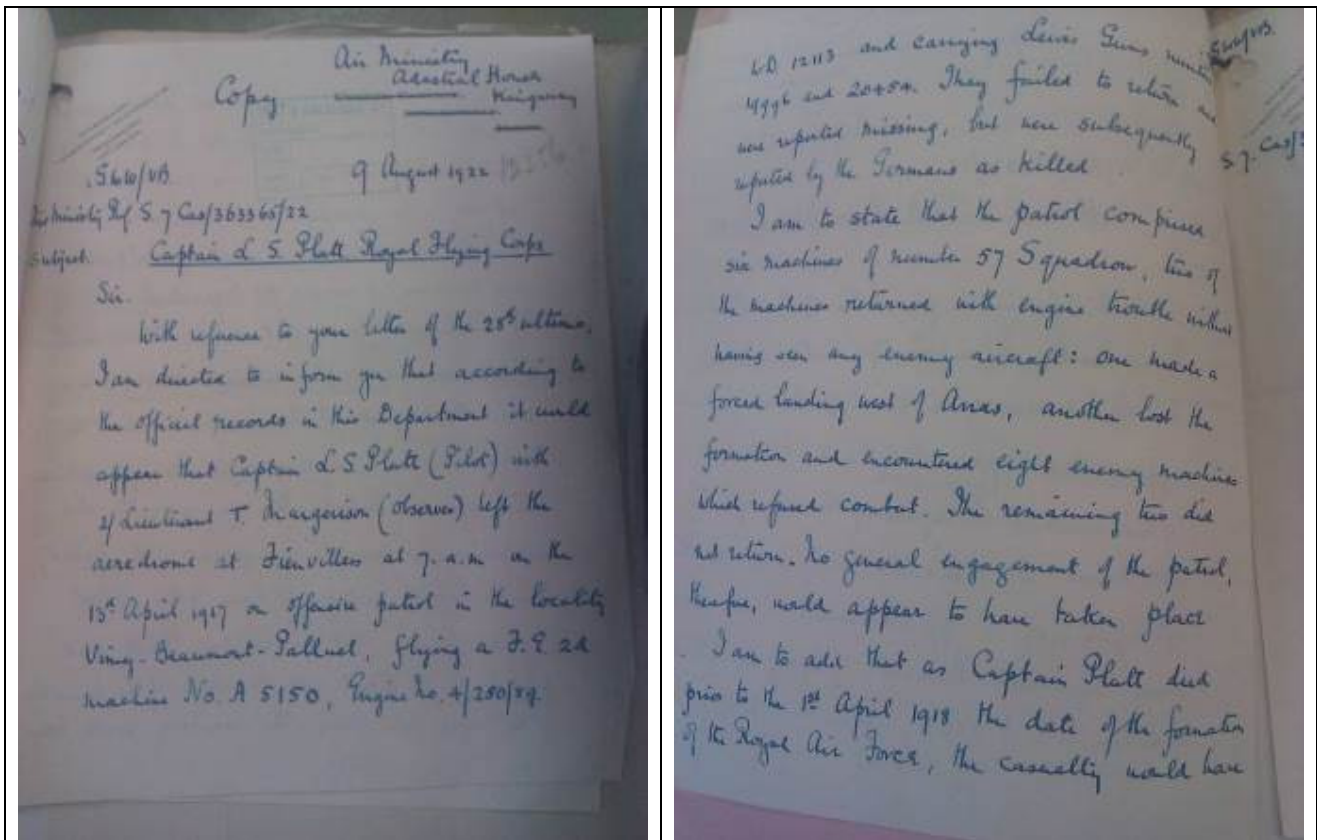 Air Ministry
Adastral House
Kingsway
Copy
S6W/VB.
9 August 1922
Air Ministry Ref S 7 Cas/363365/22
Subject. Captain L S. Platt Royal Flying Corps
Sir.
With reference to your letter of the 28th ultimo,
I am directed to inform you that according to
the official records in this Department it would
appear that Captain L S Platt (Pilot) with
2/ Lieutenant T Margerison (observer) left the
aerodrome at Fienvillers at 7. a.m on the
13th April 1917 on offensive patrol in the locality
Vimy - Beaumont - Palluel, flying a F.E. 2d
machine No. A 5150, Engine No. 4/250/
W.D. 12113 and carrying Lewis Guns
and 20454. They failed to return and
were reported missing, but were subsequently
reported by the Germans as killed
I am to state that the patrol comprised
six machines of number 57 Squadron, two of
the machines returned with engine trouble without
having seen any enemy aircraft: one made a
forced landing west of Arras, another lost the
formation and encountered eight enemy machines
which refused combat. The remaining two did
not return. No general engagement of the patrol,
therefore, would appear to have taken place
I am to add that as Captain Platt died
prior to the 1st April 1918 the date of the formation
of the Royal Air Force, the casualty would have
S7. Cas/3